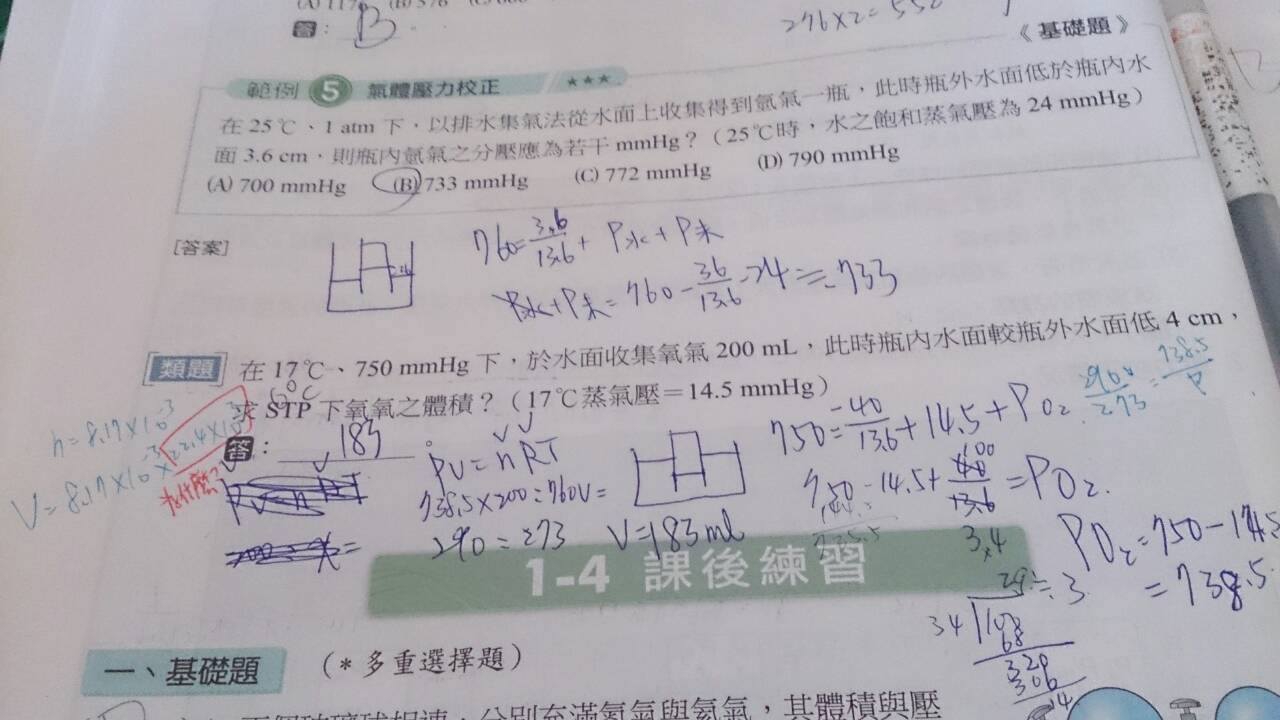 答：B
276×2=552
《基礎題》
範例 5 氣體壓力校正 ★★★
在 25℃、1 atm 下，以排水集氣法從水面上收集得到氫氣一瓶，此時瓶外水面低於瓶內水
面 3.6 cm，則瓶內氫氣之分壓應為若干 mmHg？（25℃時，水之飽和蒸氣壓為 24 mmHg）
(A) 700 mmHg (B) 733 mmHg (C) 772 mmHg (D) 790 mmHg
[答案]
760=3.6/13.6+P水+P
=760-36/13.6-24=733
[類題] 在 17℃、750 mmHg 下，於水面收集氧氣 200 mL，此時瓶內水面較瓶外水面低 4 cm，
求 STP 下氧氣之體積？（17℃蒸氣壓＝14.5 mmHg）
0℃
n=8.17×10-3
V=8.17×10-3×22.4×103
為什麼?
答：183
PV=nRT
738.5×200=760V=
290=273 V=183ml
750=40/13.6+14.5+PO2
750-14.5+40/13.6=PO2
3.4
PO2=750-14.5
=738.5
÷3
34
1-4 課後練習
一、基礎題 （*多重選擇題）
分別充滿氫氣與氦氣，其體積與壓